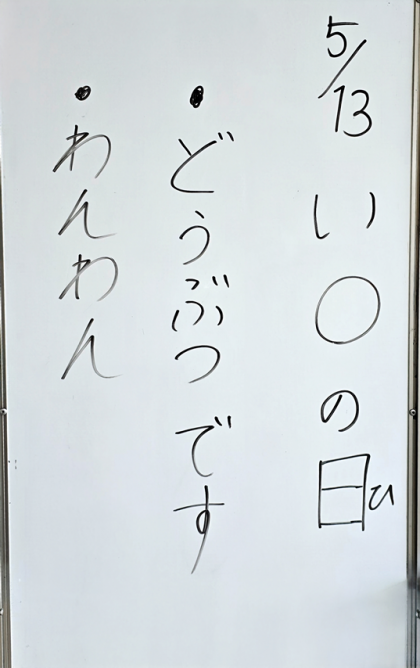 5/13 い〇の日ひ
・どうぶつです
・わんわん